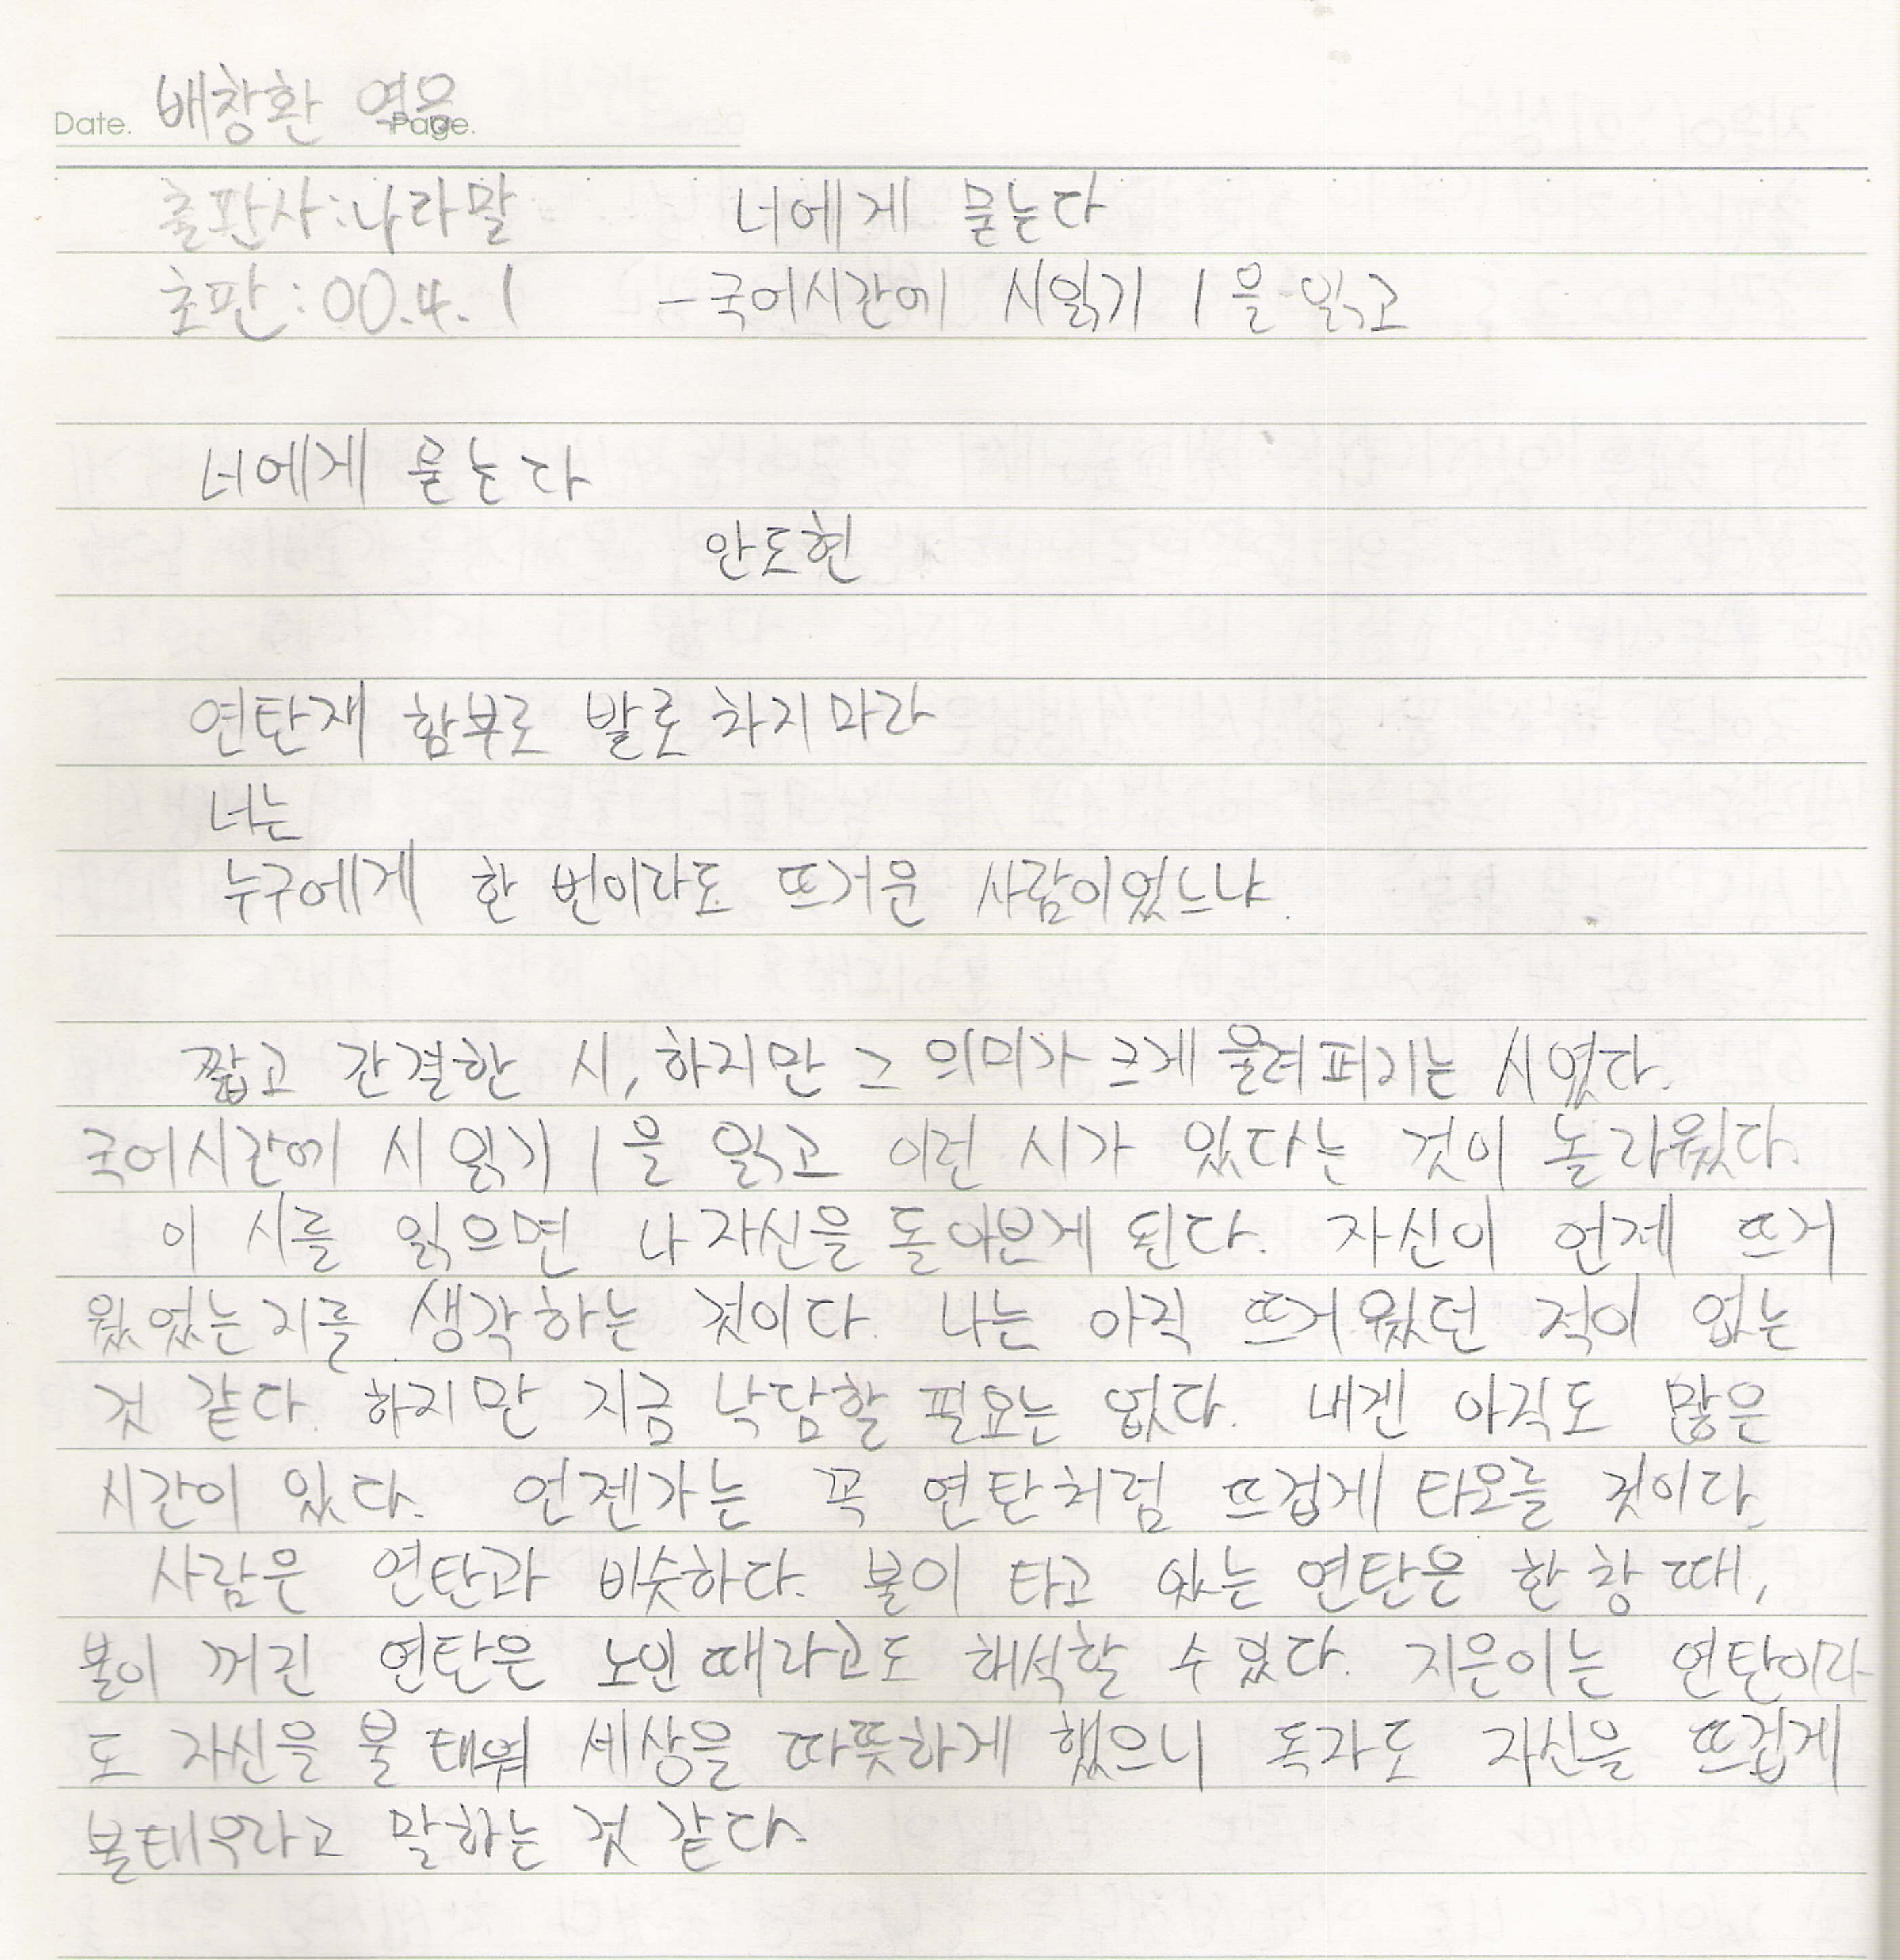 Date. 배창환 엮음 Page.
출판사:나라말 너에게 묻는다
초판:00.4.1 -국어시간에 시읽기 1을 읽고
너에게 묻는다
안도현
연탄재 함부로 발로 차지마라
너는
누구에게 한 번이라도 뜨거운 사람이었느냐.
짧고 간결한 시, 하지만 그 의미가 크게 울려퍼지는 시였다.
국어시간에 시 읽기 1을 읽고 이런 시가 있다는 것이 놀라웠다.
이 시를 읽으면 나 자신을 돌아보게 된다. 자신이 언제 뜨거
웠었는지를 생각하는 것이다. 나는 아직 뜨거웠던 적이 없는
것 같다. 하지만 지금 낙담할 필요는 없다. 내겐 아직도 많은
시간이 있다. 언젠가는 꼭 연탄처럼 뜨겁게 타오를 것이다.
사람은 연탄과 비슷하다. 불이 타고 있는 연탄은 한창 때,
불이 꺼진 연탄은 노인 때라고도 해석할 수 있다. 지은이는 연탄이라
도 자신을 불 태워 세상을 따뜻하게 했으니 독자도 자신을 뜨겁게
불태우라고 말하는 것 같다.